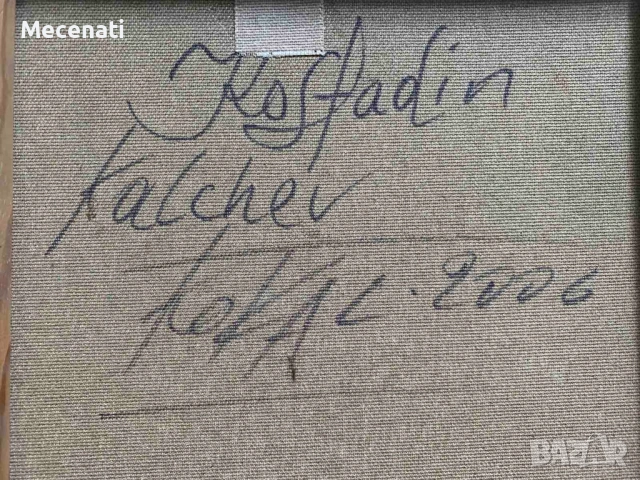 Mecenati
Kostadin
Kalchev
KoKAL. 2006
BAZAR